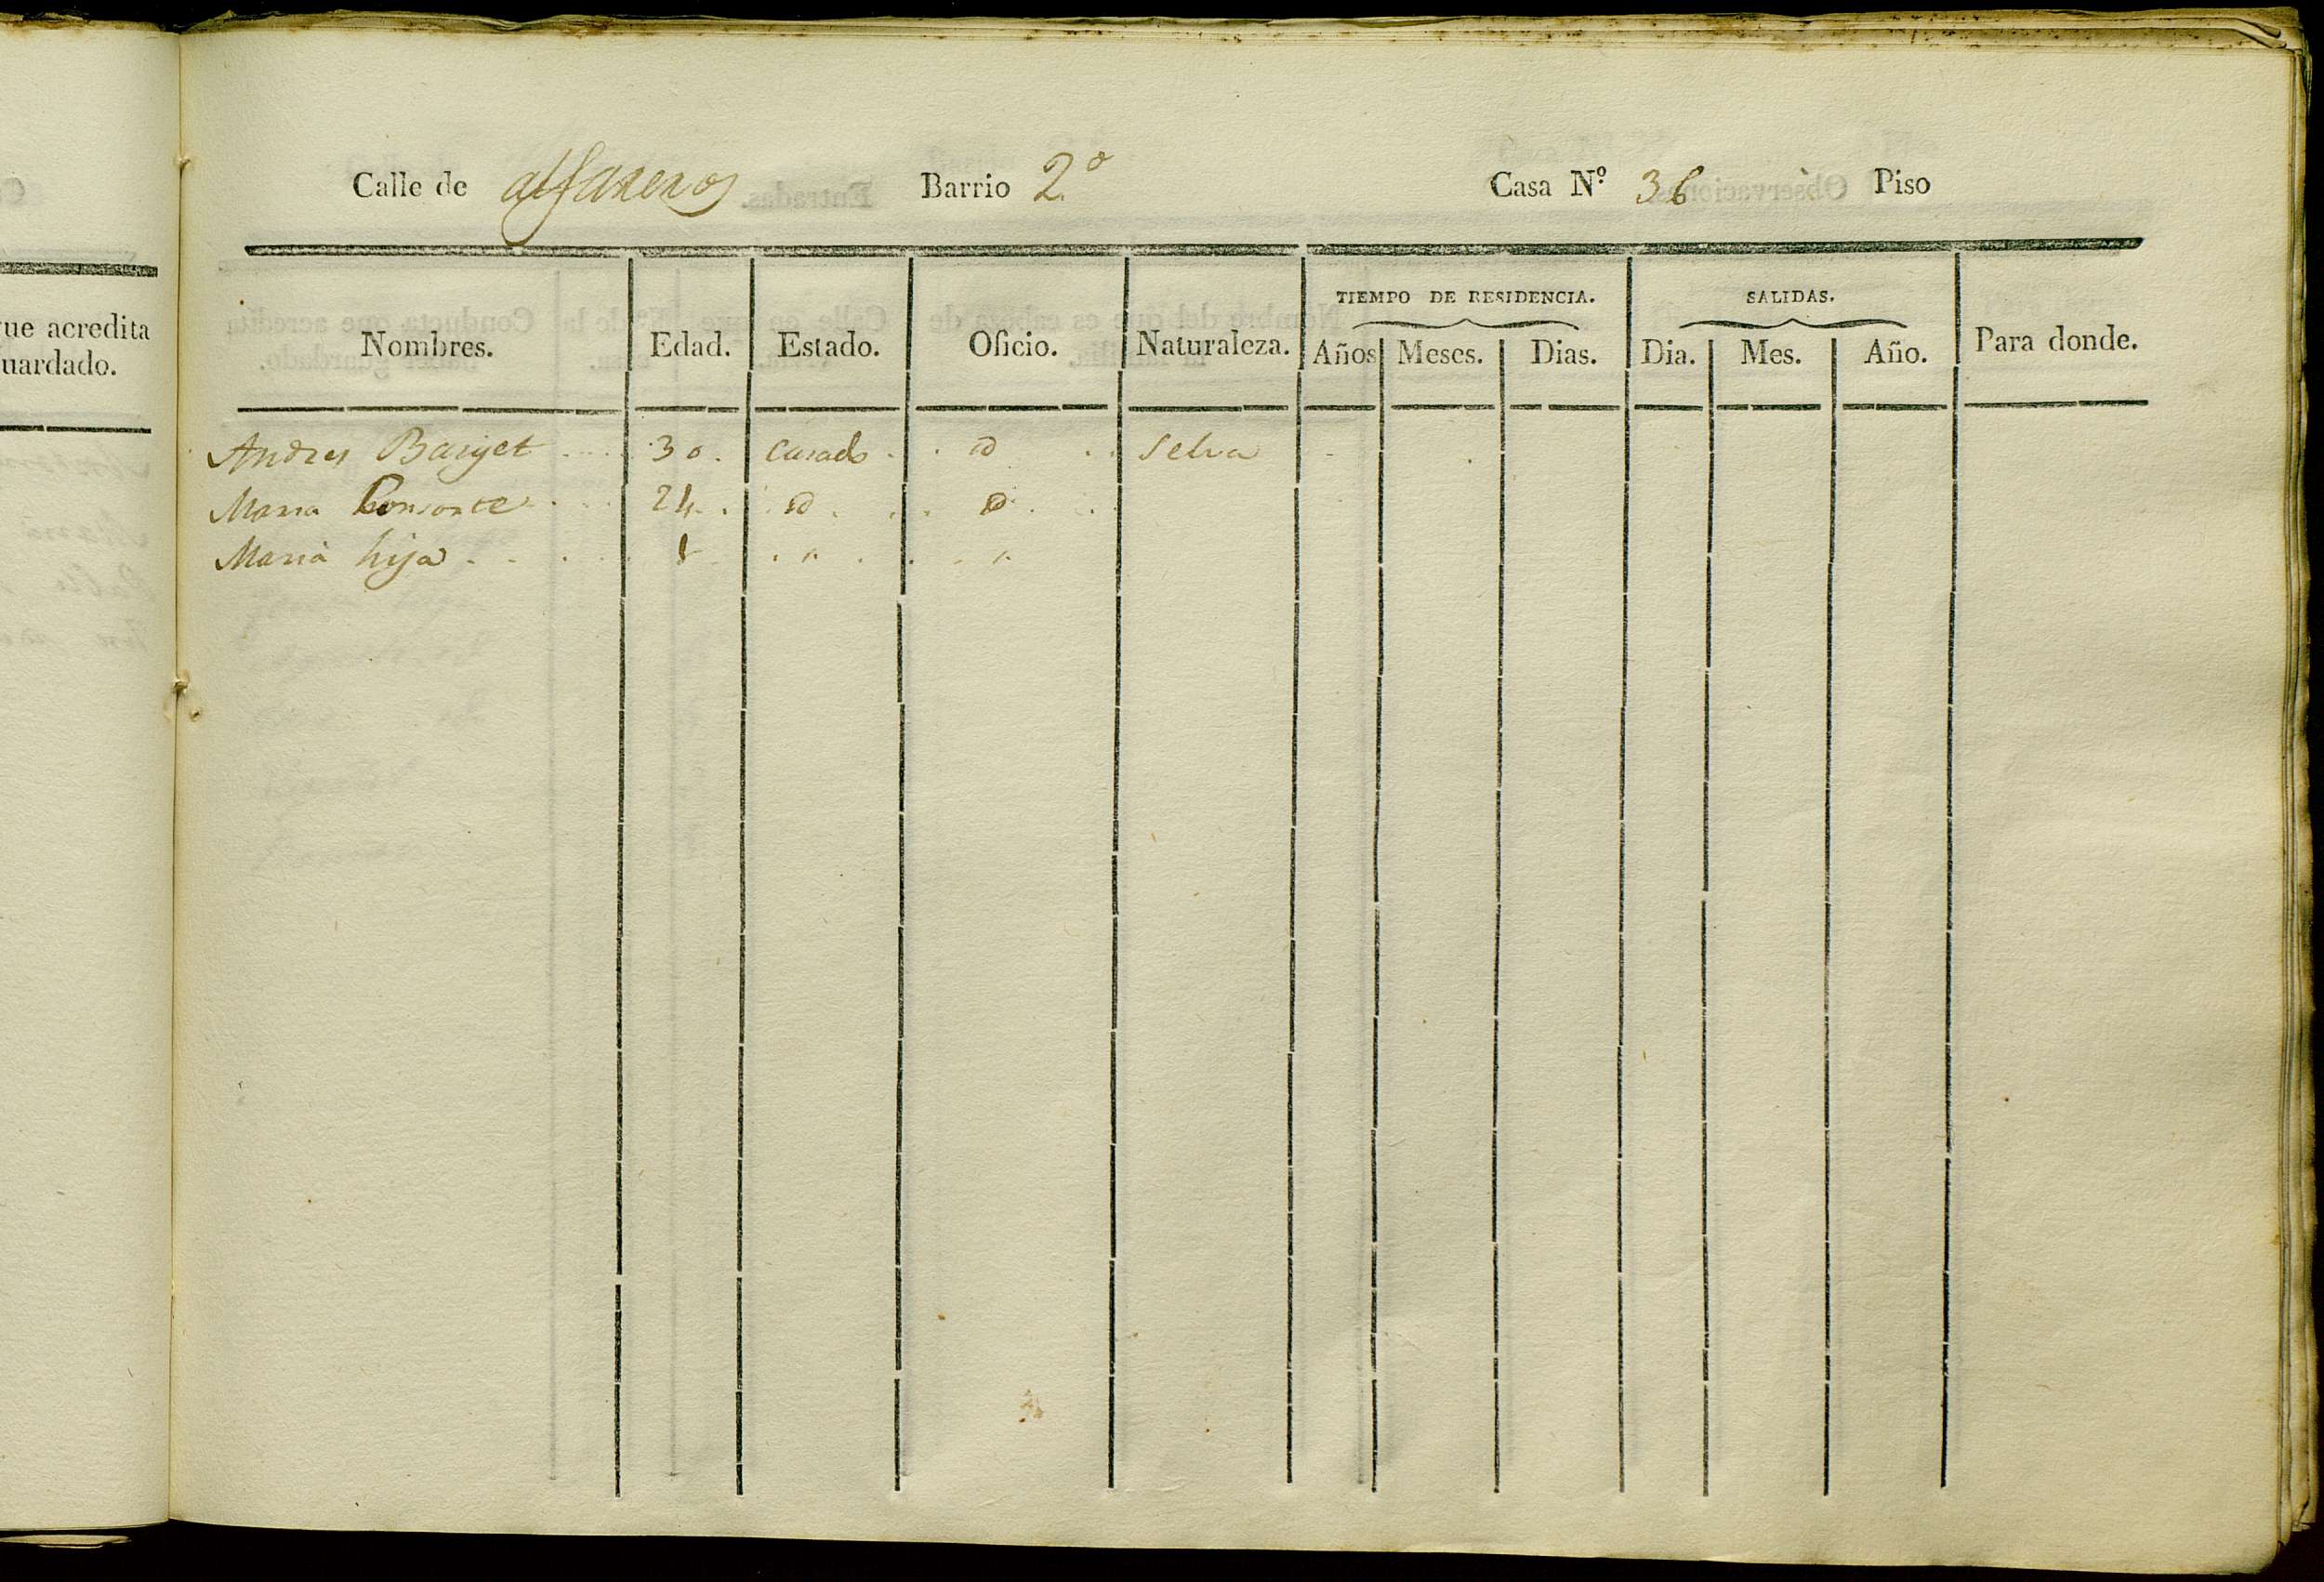 que acredita
uardado.
Calle de alfareros Barrio 2.º Casa Nº 36 Piso
Nombres. Edad. Estado. Oficio. Naturaleza. TIEMPO DE RESIDENCIA. Años Meses. Dias. SALIDAS. Dia. Mes. Año. Para donde.
Andres Barget 30. casado id Selva
Maria Consorte 24. id id
Maria hija 1 " "